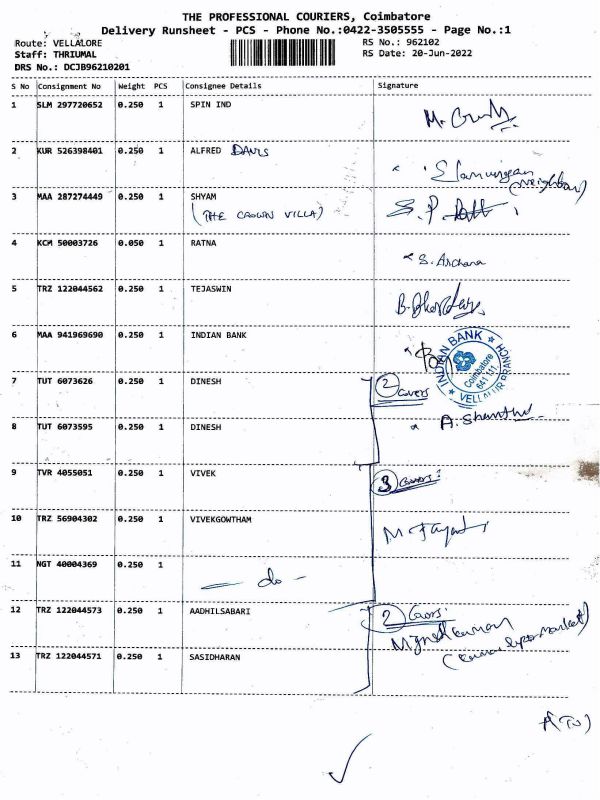 THE PROFESSIONAL COURIERS, Coimbatore
Delivery Runsheet - PCS - Phone No.:0422-3505555 - Page No.:1
Route: VELLALORE
RS No.: 962102
Staff: THRIUMAL
RS Date: 20-Jun-2022
DRS No.: DCJB96210201
S No Consignment No Weight PCS Consignee Details Signature
1 SLM 297720652 0.250 1 SPIN IND
2 KUR 526398401 0.250 1 ALFRED
(neighbour)
3 MAA 287274449 0.250 1 SHYAM
(THE CROWN VILLA)
4 KCM 50003726 0.050 1 RATNA
S. Archana
5 TRZ 122044562 0.250 1 TEJASWIN
6 MAA 941969690 0.250 1 INDIAN BANK
INDIAN BANK
Coimbatore
641 111
VELLALUR BRANCH
7 TUT 6073626 0.250 1 DINESH
2 Covers
8 TUT 6073595 0.250 1 DINESH
A. Shanthi
9 TVR 4055051 0.250 1 VIVEK
3 Covers:
10 TRZ 56904302 0.250 1 VIVEKGOWTHAM
11 NGT 40004369 0.250 1
- do -
12 TRZ 122044573 0.250 1 AADHILSABARI
2 Covers:
13 TRZ 122044571 0.250 1 SASIDHARAN